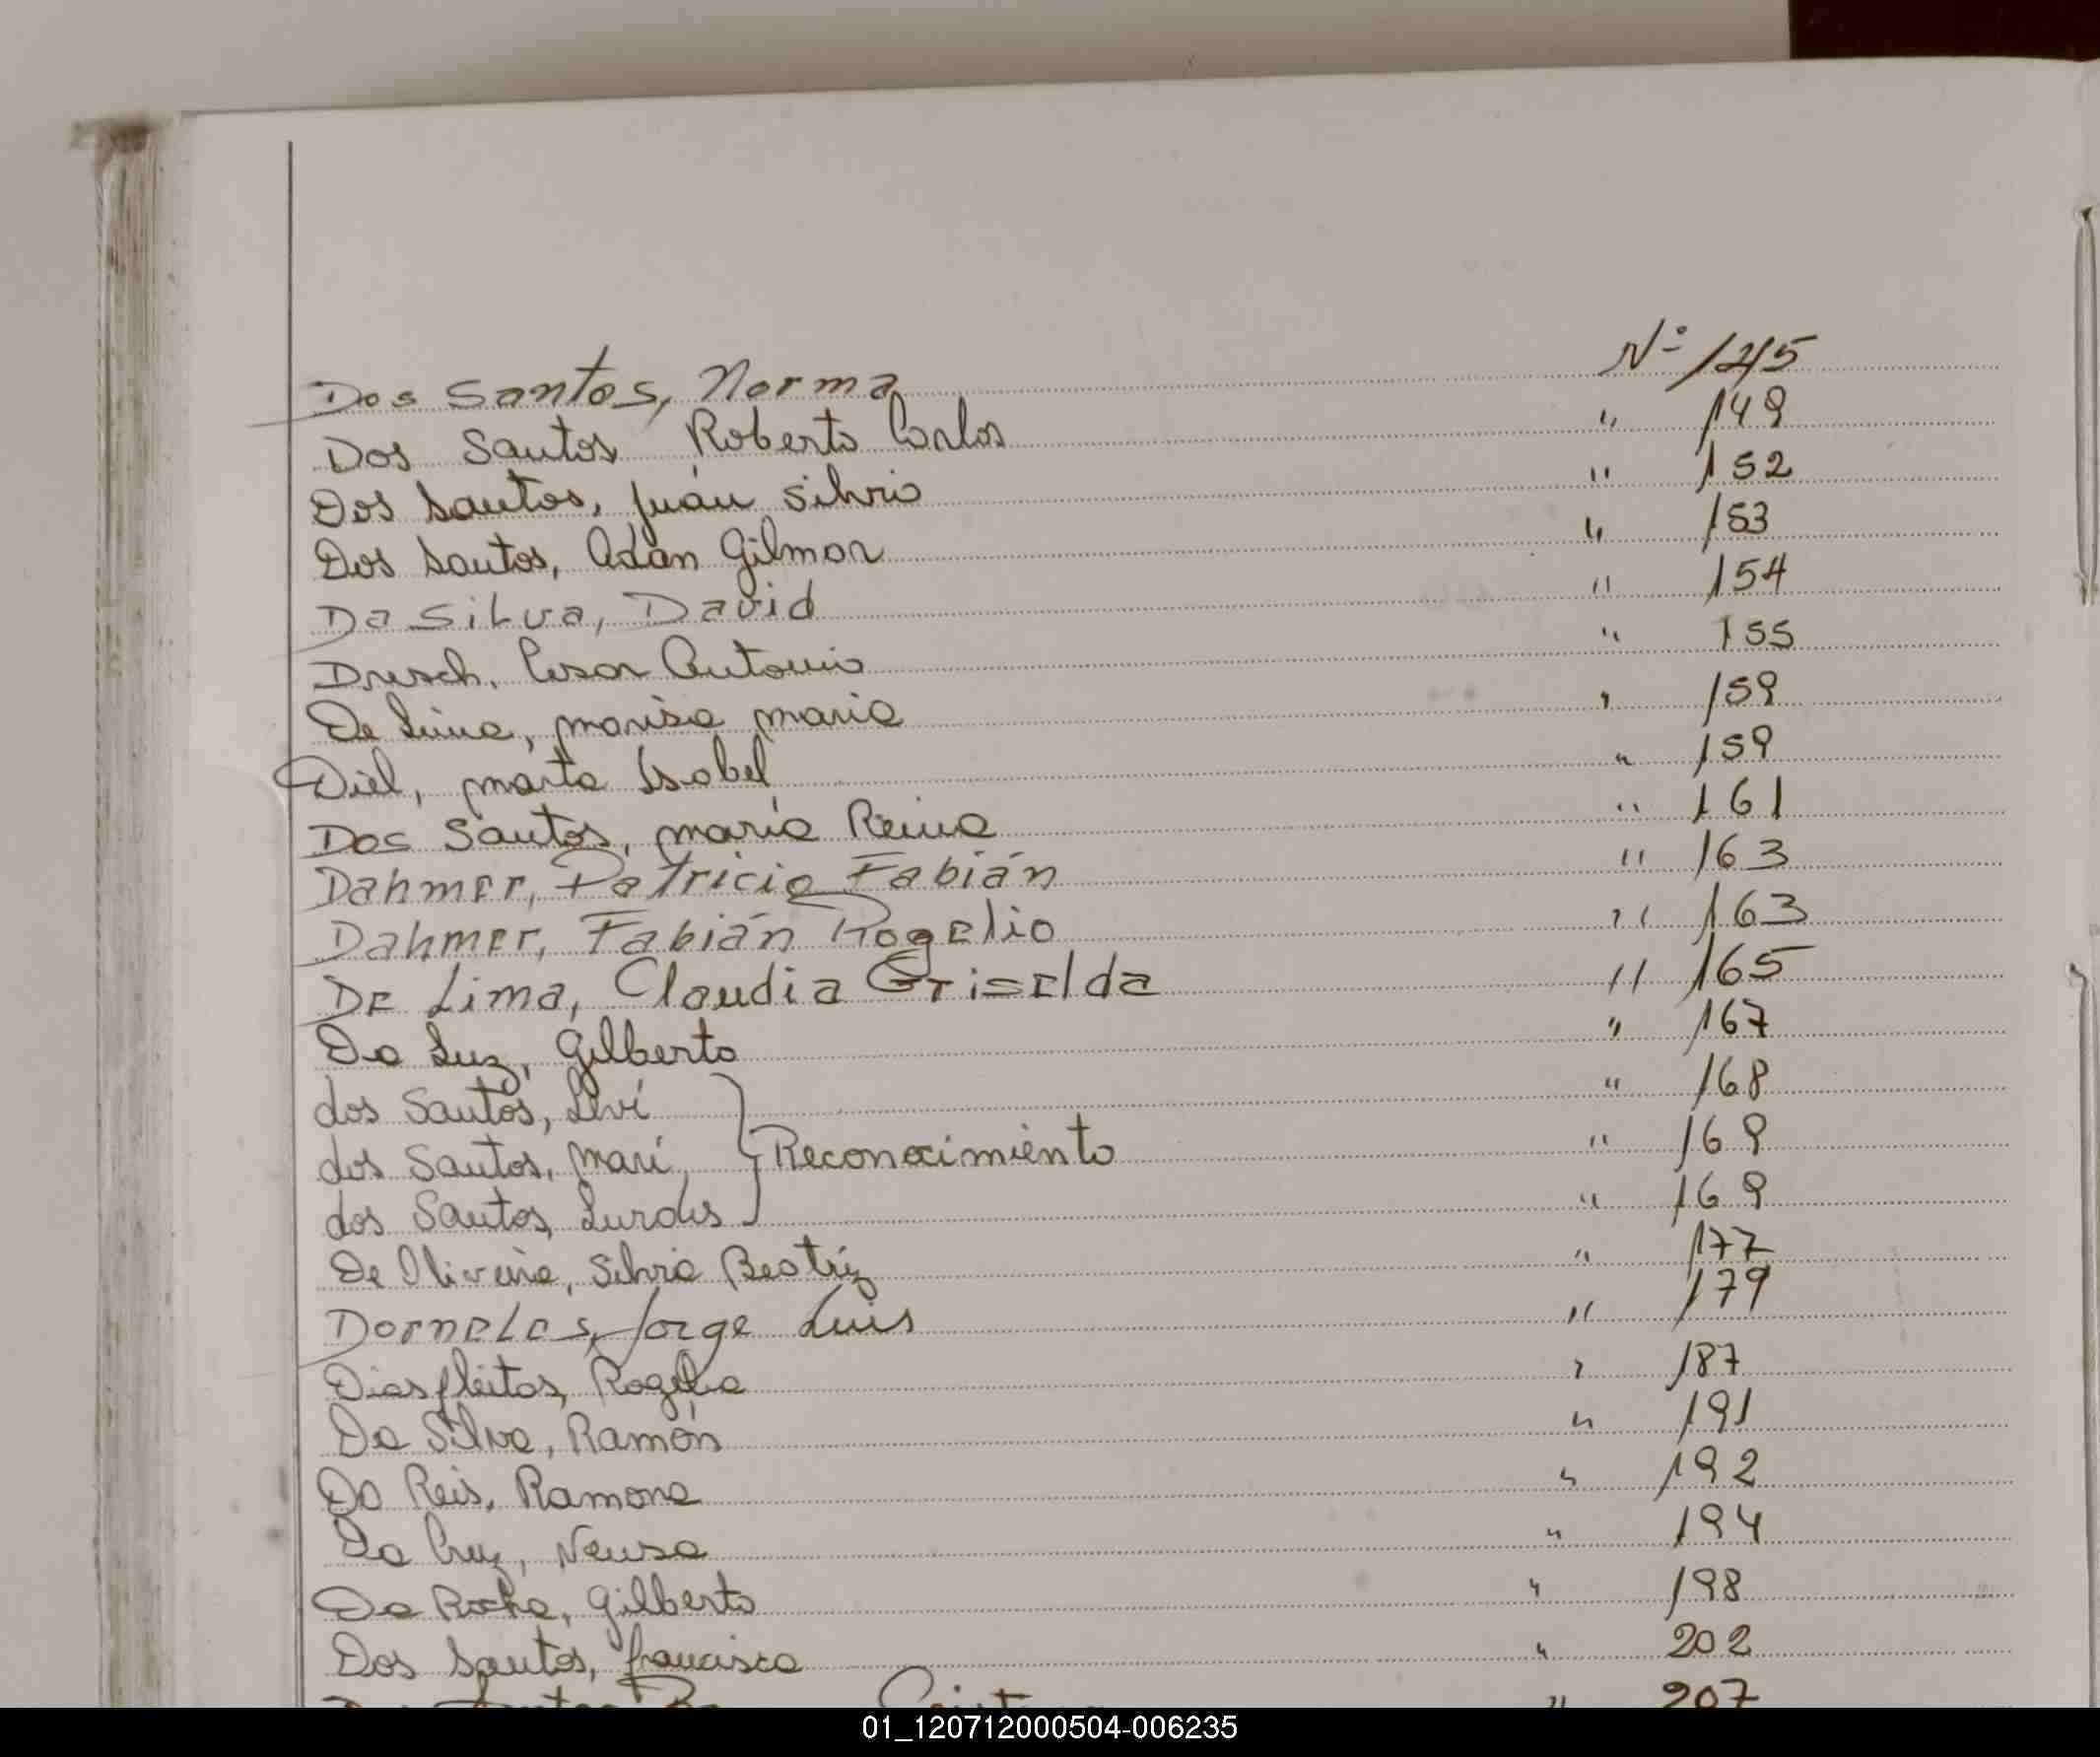 Dos Santos, Norma Nº 145
Dos Santos, Roberto Carlos " 149
Dos Santos, Juán Silvio " 152
Dos Santos, Adán Gilmar " 153
Da Silva, David " 154
Dresch, Cesar Antonio " 155
De Lima, Marisa Maria " 159
Diel, Marta Isabel " 159
Dos Santos, María Reina " 161
Dahmer, Patricio Fabián " 163
Dahmer, Fabián Rogelio " 163
De Lima, Claudia Griselda " 165
Da Luz, Gilberto " 167
dos Santos, Leví " 168
dos Santos, Mari } Reconocimiento " 169
dos Santos, Lurdes " 169
De Oliveira, Silvia Beatríz " 177
Dorneles, Jorge Luis " 179
Diasfleitas, Rogelia " 187
Da Silva, Ramón " 191
Do Reis, Ramona " 192
Da Cruz, Neusa " 194
Da Rocha, Gilberto " 198
Dos Santos, Francisca " 202
" 207
01_120712000504-006235